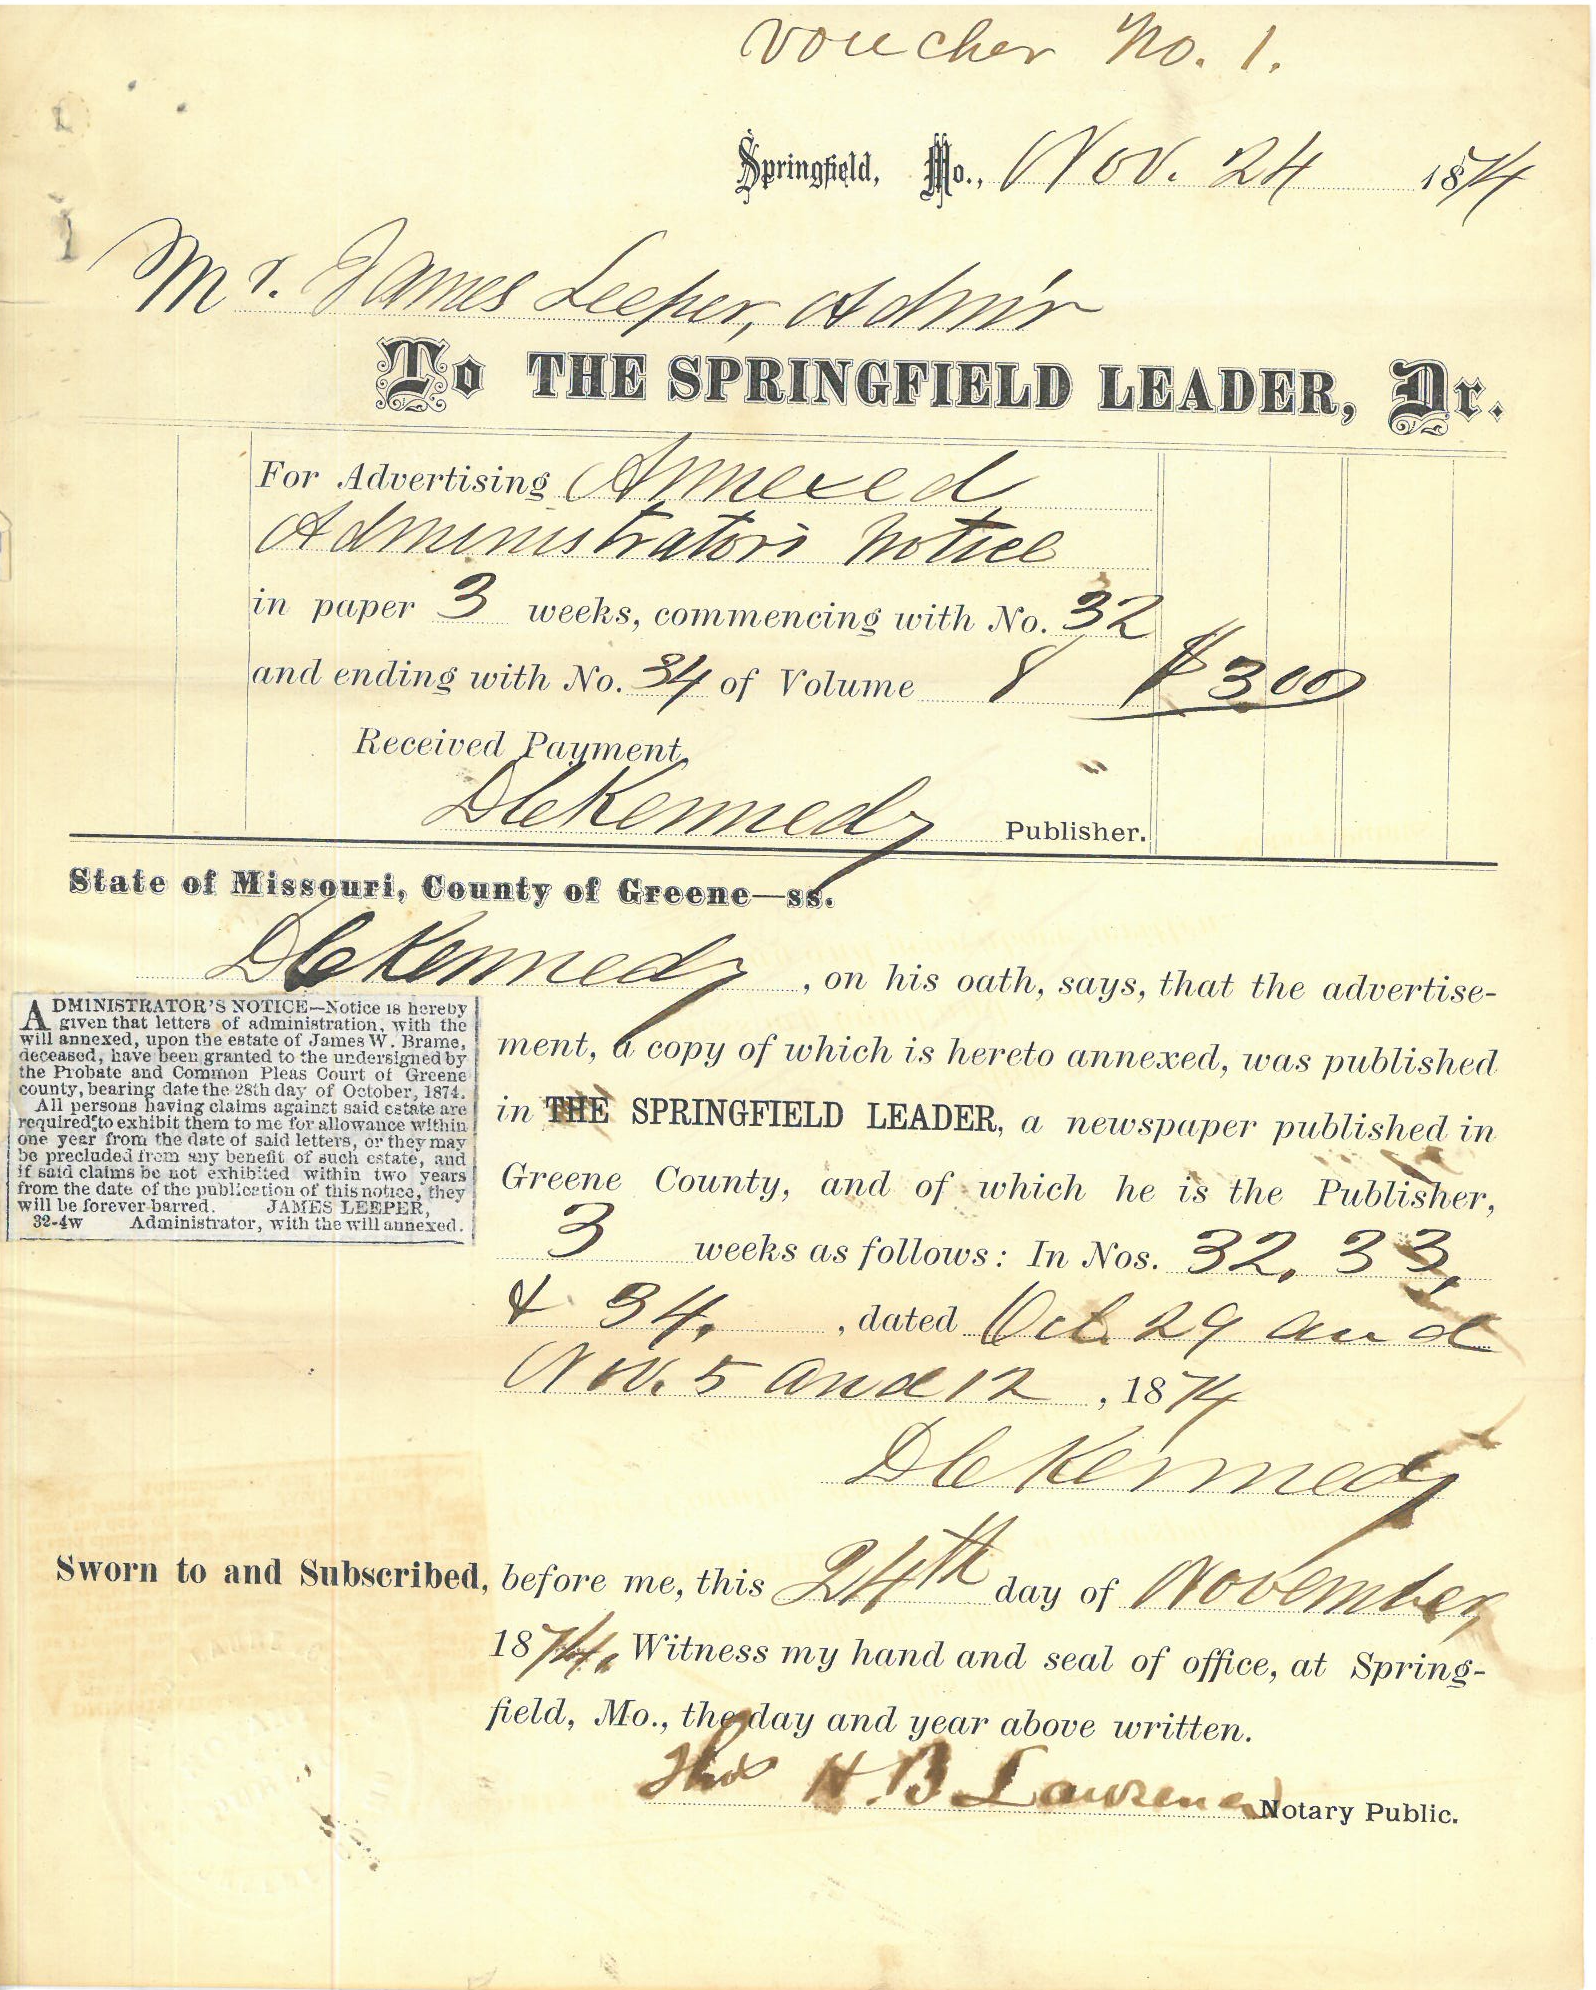 Voucher No. 1.
Springfield, Mo., Nov. 24 1874
Mr. James Leeper, Adm'r
To THE SPRINGFIELD LEADER, Dr.
For Advertising Annexed
Administrators Notice
in paper 3 weeks, commencing with No. 32
and ending with No. 34 of Volume 8 $3.00
Received Payment,
D C Kennedy Publisher.
State of Missouri, County of Greene—ss.
D C Kennedy, on his oath, says, that the advertise-
ment, a copy of which is hereto annexed, was published
in THE SPRINGFIELD LEADER, a newspaper published in
Greene County, and of which he is the Publisher,
3 weeks as follows: In Nos. 32, 33,
& 34, , dated Oct. 29 and
Nov. 5 and 12 , 1874
D C Kennedy
ADMINISTRATOR'S NOTICE—Notice is hereby
given that letters of administration, with the
will annexed, upon the estate of James W. Brame,
deceased, have been granted to the undersigned by
the Probate and Common Pleas Court of Greene
county, bearing date the 28th day of October, 1874.
All persons having claims against said estate are
required to exhibit them to me for allowance within
one year from the date of said letters, or they may
be precluded from any benefit of such estate, and
if said claims be not exhibited within two years
from the date of the publication of this notice, they
will be forever barred. JAMES LEEPER,
32-4w Administrator, with the will annexed.
Sworn to and Subscribed, before me, this 24th day of November,
1874. Witness my hand and seal of office, at Spring-
field, Mo., the day and year above written.
Thos H. B. Lawrence Notary Public.